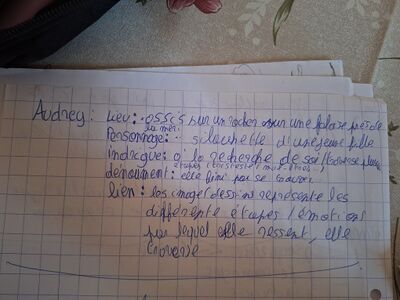 Audrey : Lieu : assis sur un rocher sur une falaise près de
la mer.
Personnage : silouchette d'une jeune fille
indrigue : à la recherche de soi (traverse plusieurs
étapes
dénoument : elle fini par se trouver
lien : les image/dessins représente les
différente étapes/émotions
par lequel elle ressent, elle
traverse